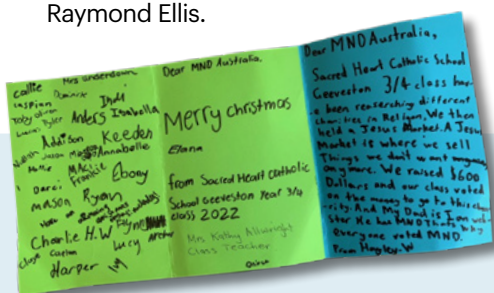 Raymond Ellis.
Callie Mrs Anderson
Caspian Dominic
Indi
Toby
Tyler Anders Isabella
Addison Keeden
Annabelle
Maggie
Darci Frankie Ebony
Mason Ryan
Charlie H.W
Lucy Archer
Harper
Dear MND Australia,
Merry christmas
Elana
from Sacred Heart catholic
School Geeveston Year 3/4
class 2022
Mrs Kathy
Class Teacher
Dear MND Australia,
Sacred Heart Catholic School
Geeveston 3/4 class have
been reaserching different
charities in Religion. We then
held a Jesus Market. A Jesus
Market is where we sell
Things we don't want
anymore. We raised $600
Dollars and our class voted
on the money to go to this
charity. And My Dad is Ian web
ster He has MND Thats why
everyone voted MND.
From Hayley.W